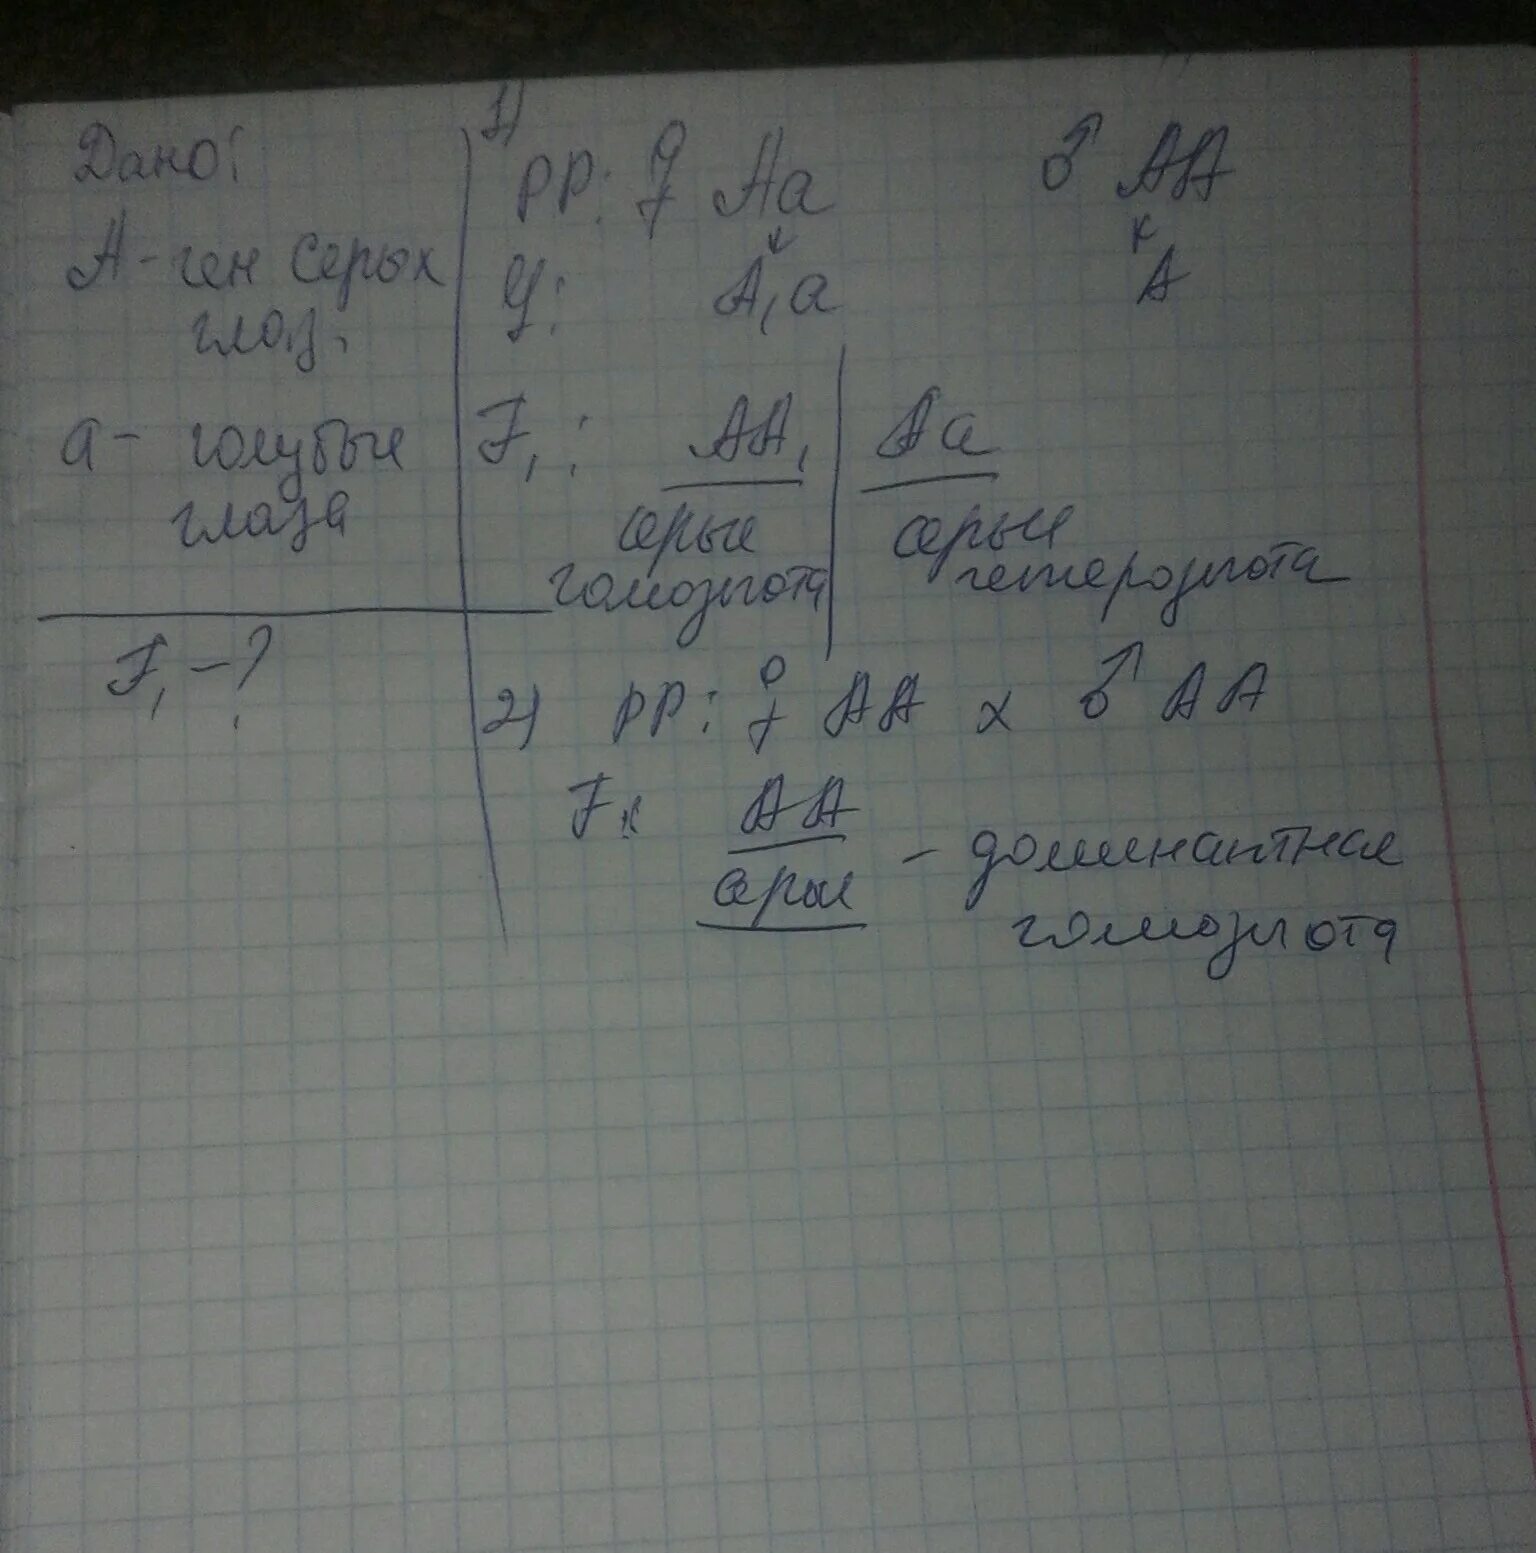 Дано:
А - ген серых
глаз.
а - голубые
глаза
F₁ - ?
1)
РР: ♀ Аа ♂ АА
А, а А
F₁: АА, Аа
серые серые
гомозигота гетерозигота
2) РР: ♀ АА х ♂ АА
F АА
серые - доминантная
гомозигота